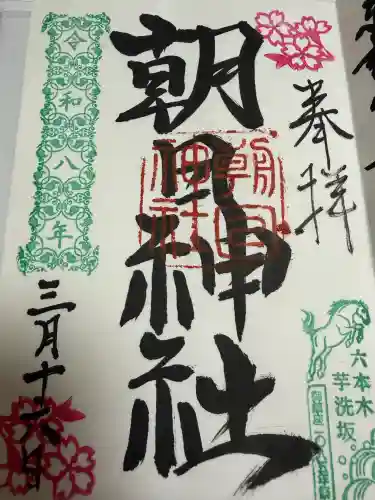 奉拝
朝日神社
朝日
神社
令和八年
三月十六日
六本木
芋洗坂